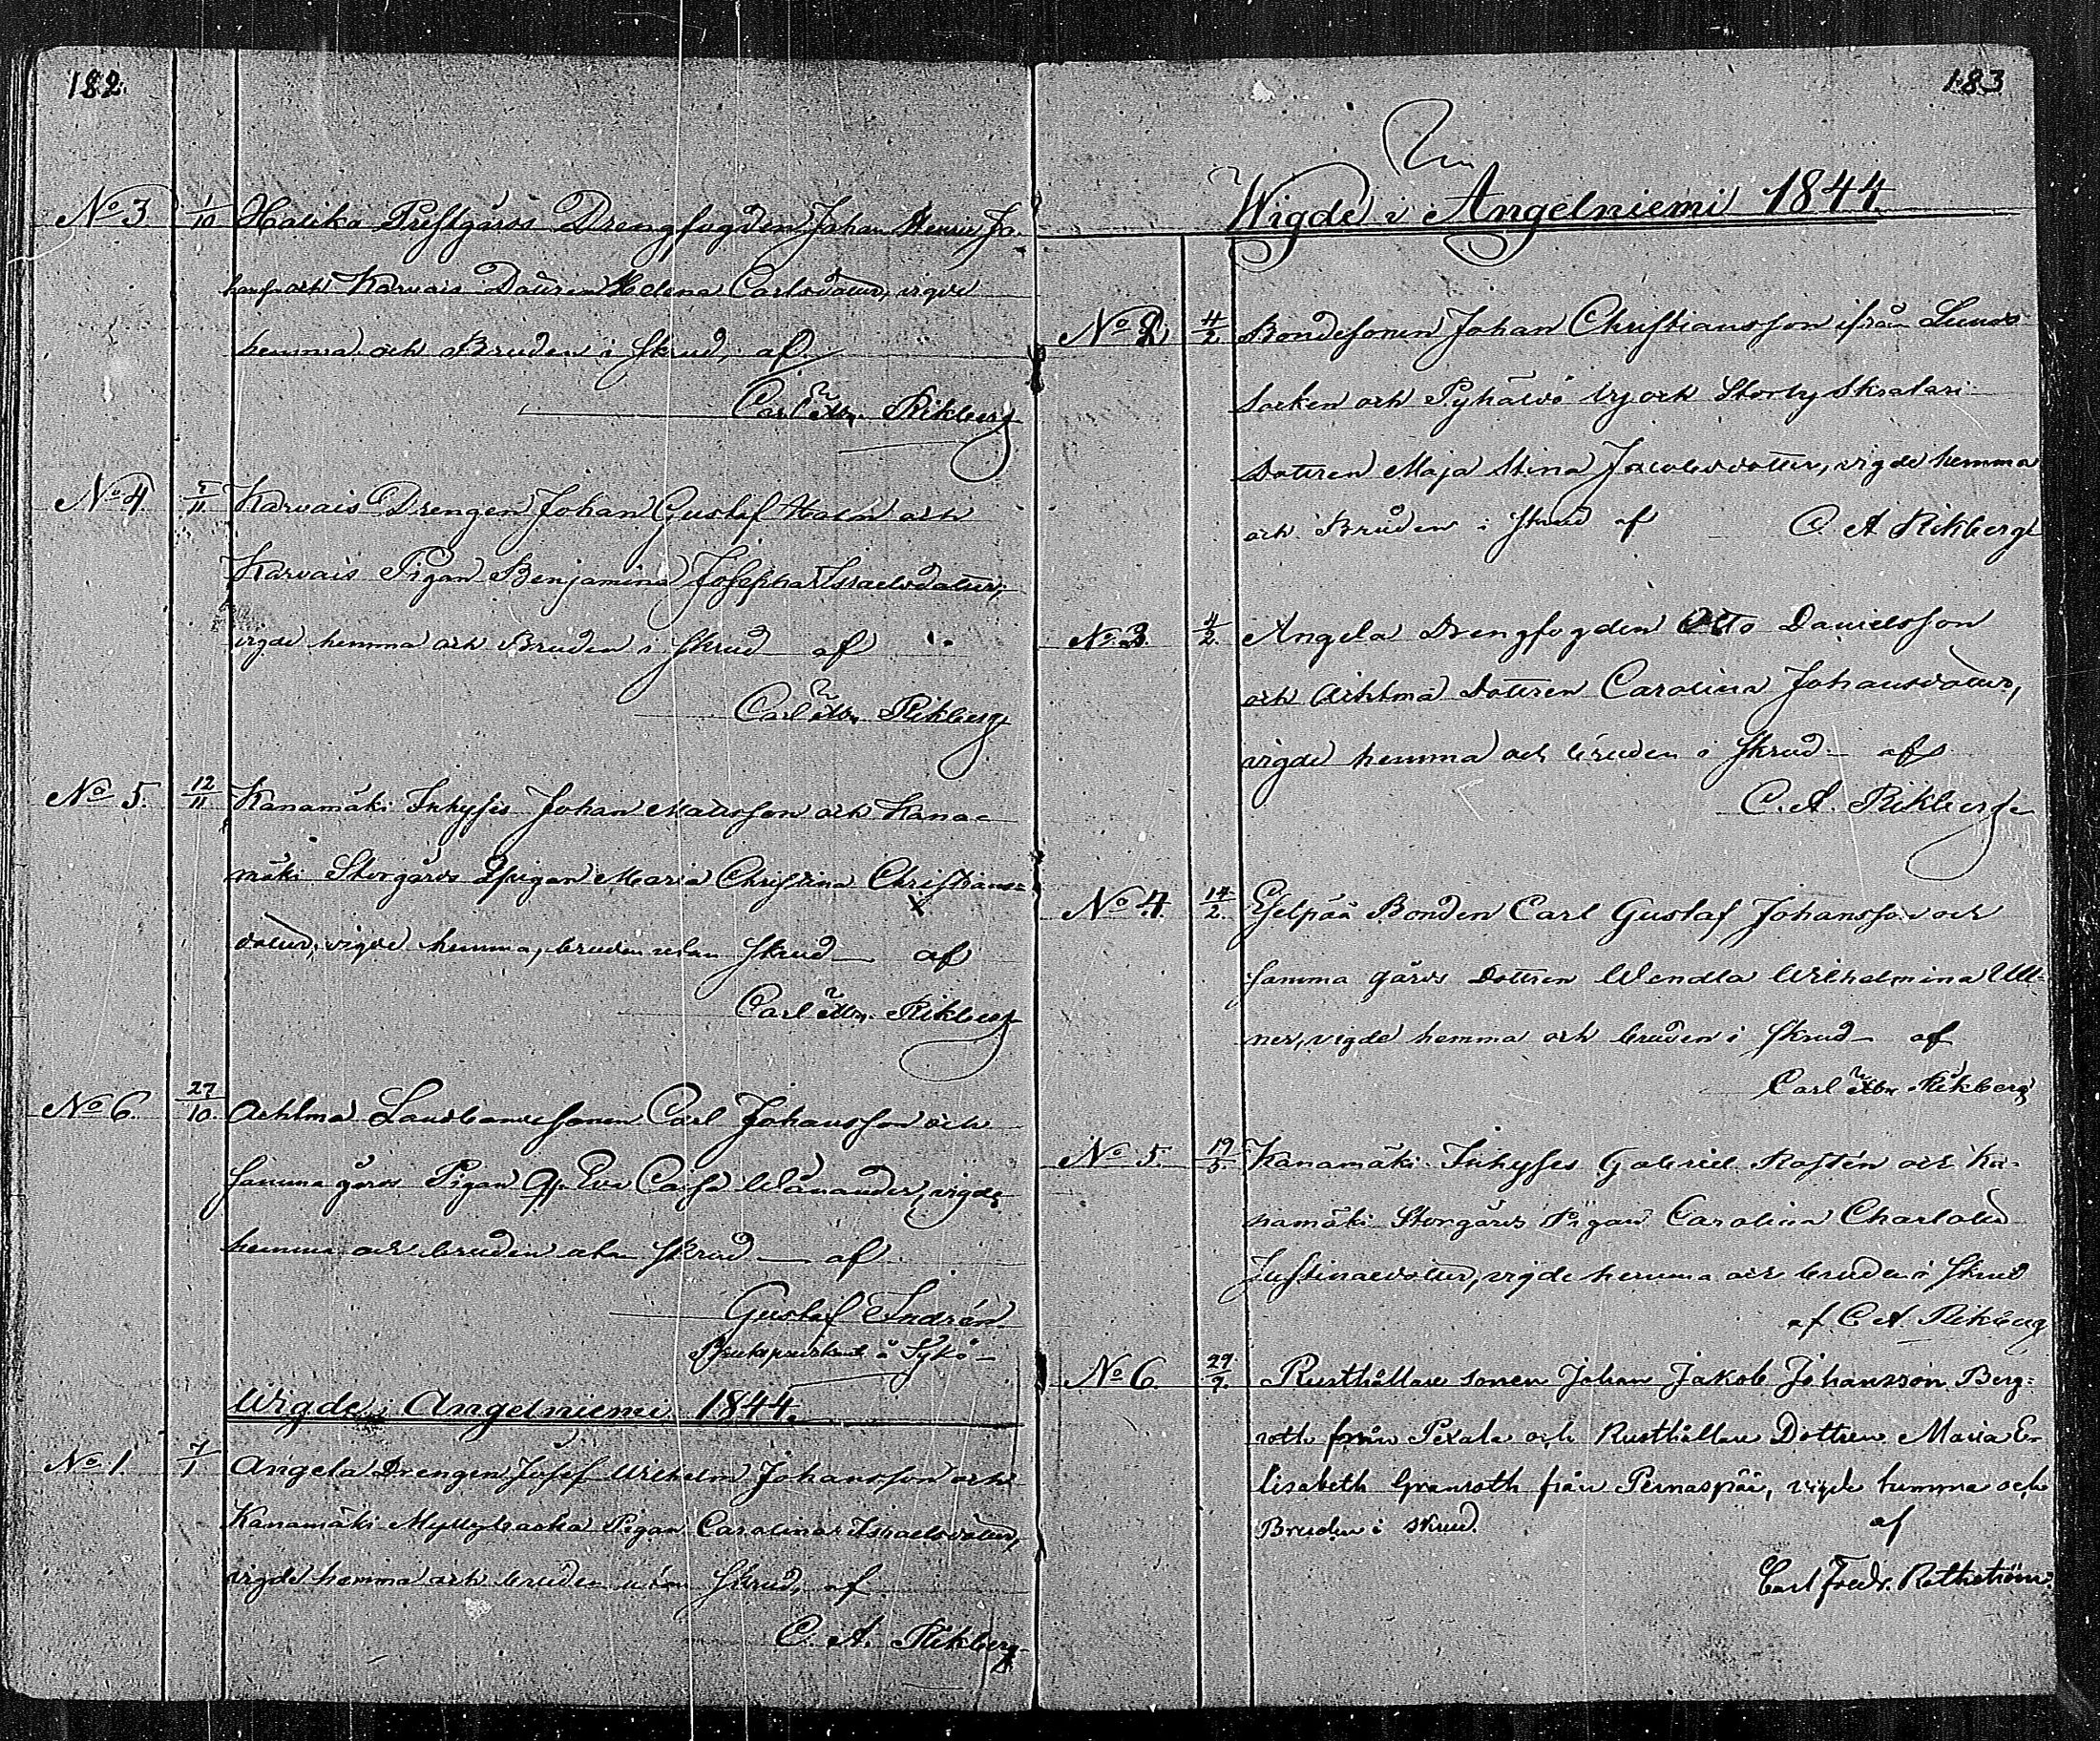 182.
No 3 1/10 Haliko Prestgårds Drengfogden Johan Henric Jo-
hansson och Karvais Dottren Helena Carlsdotter, vigde
hemma och Bruden i skrud, af
Carl Abr. Rikberg
No 4. 5/11 Karvais Drengen Johan Gustaf Holm och
Karvais Pigan Benjamina Josepha Israelsdotter,
vigde hemma och Bruden i skrud af
Carl Abr. Rikberg
No 5. 12/11 Kanamäki Inhyses Johan Matsson och Kana-
mäki Storgårds pigan Maria Christina Christians-
dotter, vigde hemma, bruden utan skrud af
Carl Abr. Rikberg
No 6. 27/10. Achtma Landbondesonen Carl Johansson och
samma gårds Pigan Eva Cajsa Wänander, vigde
hemma och bruden utan skrud af
Gustaf Indrén
Brukspredikant å Tykö
Wigde i Angelniemi 1844.
No 1. 7/1 Angela Drengen Josef Wilhelm Johansson och
Kanamäki Myllybacka Pigan Carolina Israelsdotter,
vigde hemma och bruden utan skrud, af
C. A. Rikberg
183
Wigde i Angelniemi 1844
No 2. 4/2 Bondesonen Johan Christiansson ifrån Lundo
Socken och Pyhältö by och Storby Skratari
Dottren Maja Stina Jacobsdotter, vigde hemma
och Bruden i skrud af C A Rikberg
No. 3. 4/2. Angela Drengfogden Otto Danielsson
och Achtma Dottren Carolina Johansdotter,
vigde hemma och bruden i skrud af
C. A. Rikberg
No 4. 14/2. Esselpää Bonden Carl Gustaf Johansson och
samma gårds Dottren Wendla Wilhelmina Ull-
ner, vigde hemma och bruden i skrud af
Carl Abr Rikberg
No 5. 19/5. Kanamäki Inhyses Gabriel Rostén och Ka-
namäki Storgårds Pigan Carolina Charlotta
Justinaedotter, vigde hemma och bruden i skrud
af C A. Rikberg
No 6. 29/9. Rusthållare sonen Johan Jakob Johansson Berg-
roth från Pexala och Rusthållare Dottren Maria E-
lisabeth Granroth från Pernaspää, vigde hemma och
Bruden i skrud. af
Carl Fredr. Rotheström.